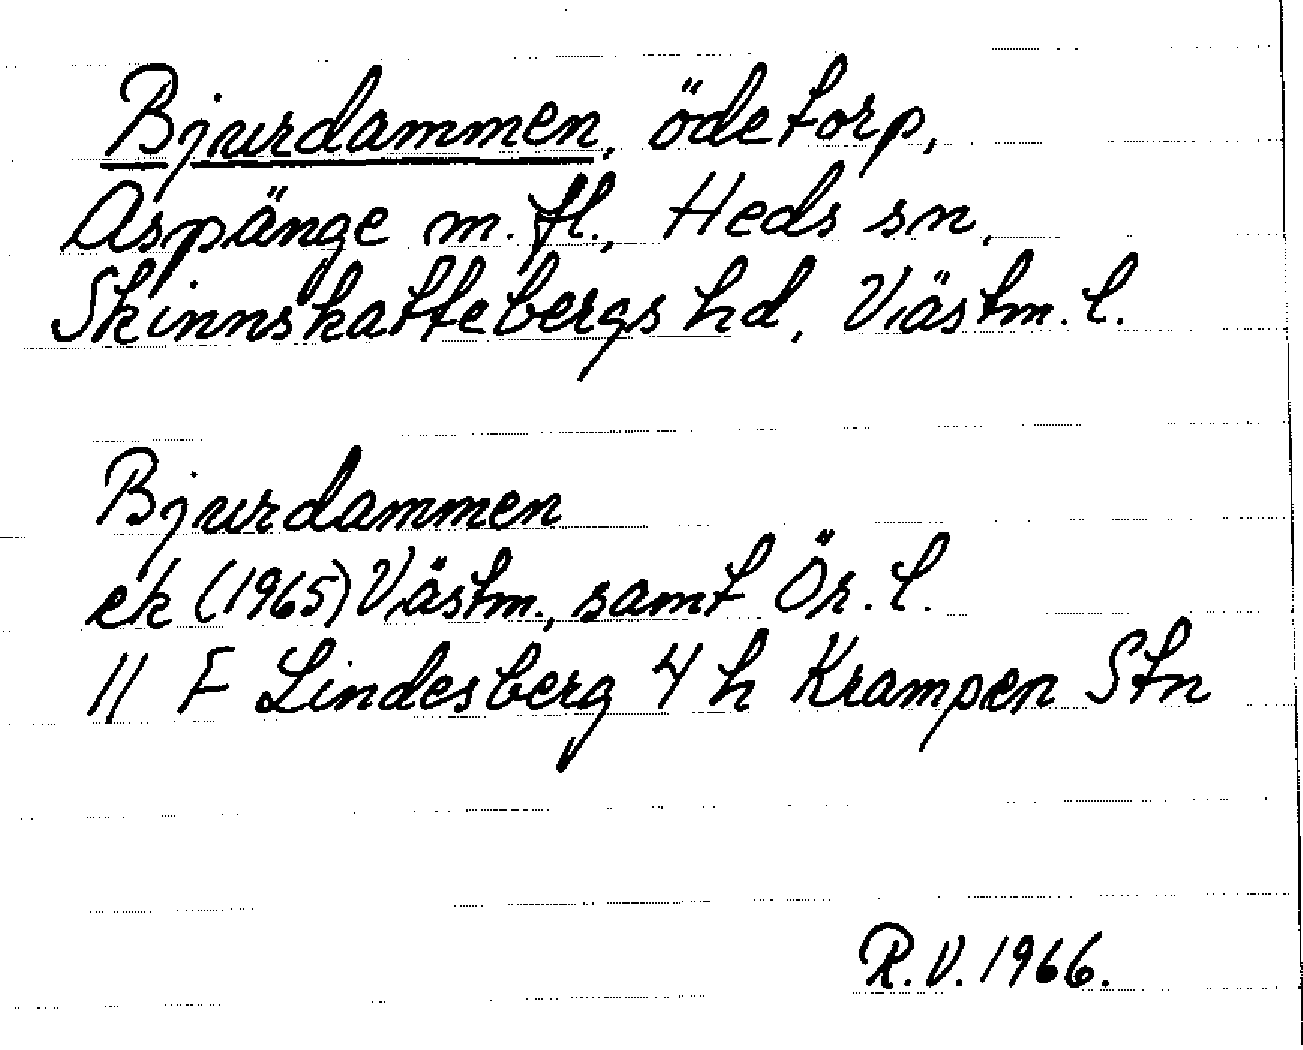 Bjurdammen, ödetorp,
Aspänge m. fl., Heds sn,
Skinnskattebergs hd, Västm. l.
Bjurdammen
ek (1965) Västm., samt Ör. l.
11 F Lindesberg 4 h Krampen Stn
R.V. 1966.